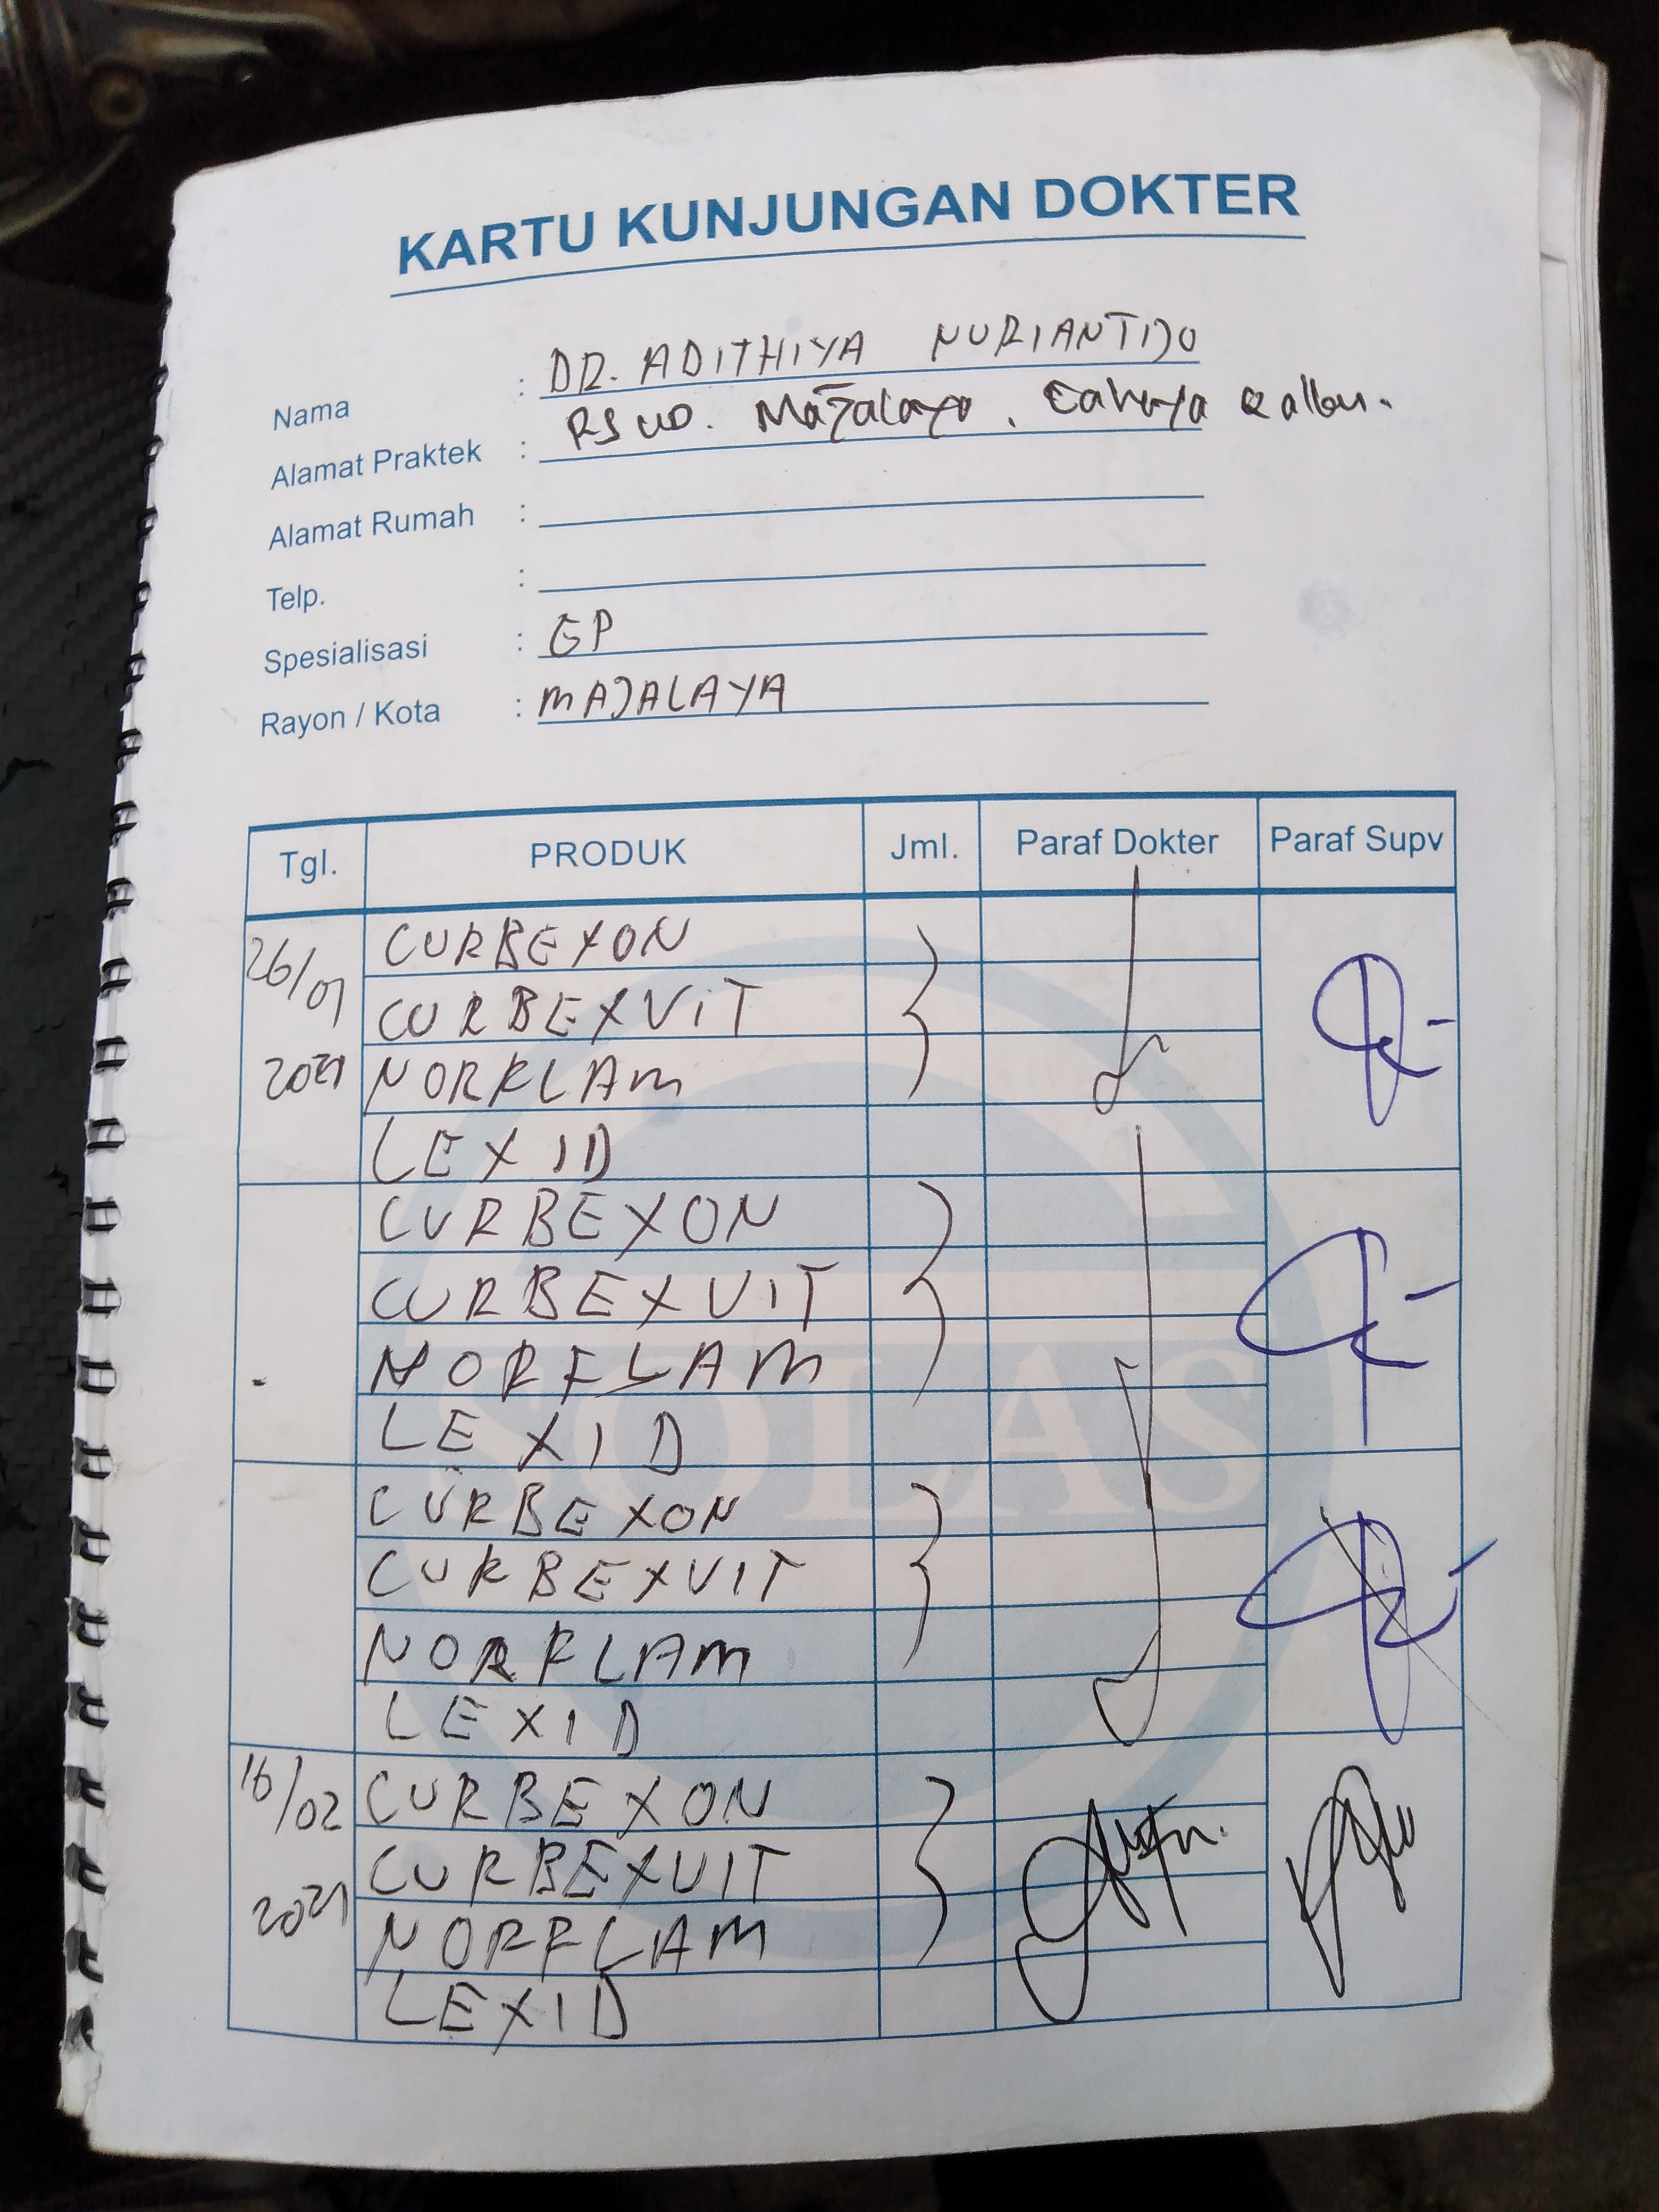 KARTU KUNJUNGAN DOKTER
Nama : DR. ADITHIYA NURIANTIJO
Alamat Praktek : RSUD. Majalaya. Cahaya Qalbu.
Alamat Rumah :
Telp. :
Spesialisasi : GP
Rayon / Kota : MAJALAYA
Tgl. PRODUK Jml. Paraf Dokter Paraf Supv
26/01 CURBEXON
CURBEXVIT
2021 NORFLAM
LEXID
CURBEXON
CURBEXVIT
NORFLAM
LEXID
CURBEXON
CURBEXVIT
NORFLAM
LEXID
16/02 CURBEXON
CURBEXVIT
2021 NORFLAM
LEXID
SOLAS